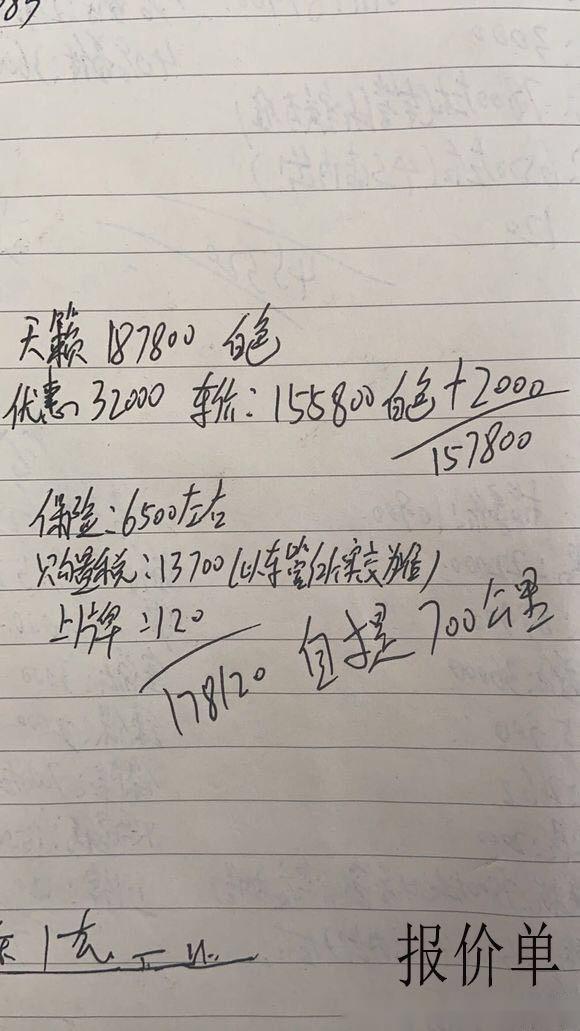 天籁 187800 白色
优惠 32000 车价: 155800 白色+2000
157800
保险: 6500左右
购置税: 13700 (以车管所实交为准)
上牌: 120
178120 自提 700公里
报价单